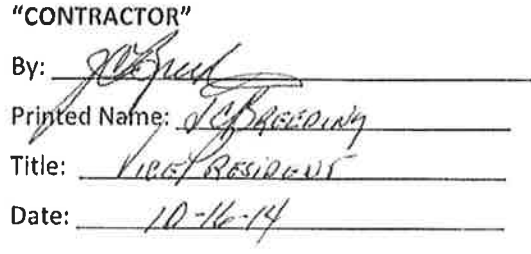 "CONTRACTOR"
By: JC Breed
Printed Name: JC BREEDING
Title: VICE PRESIDENT
Date: 10-16-14